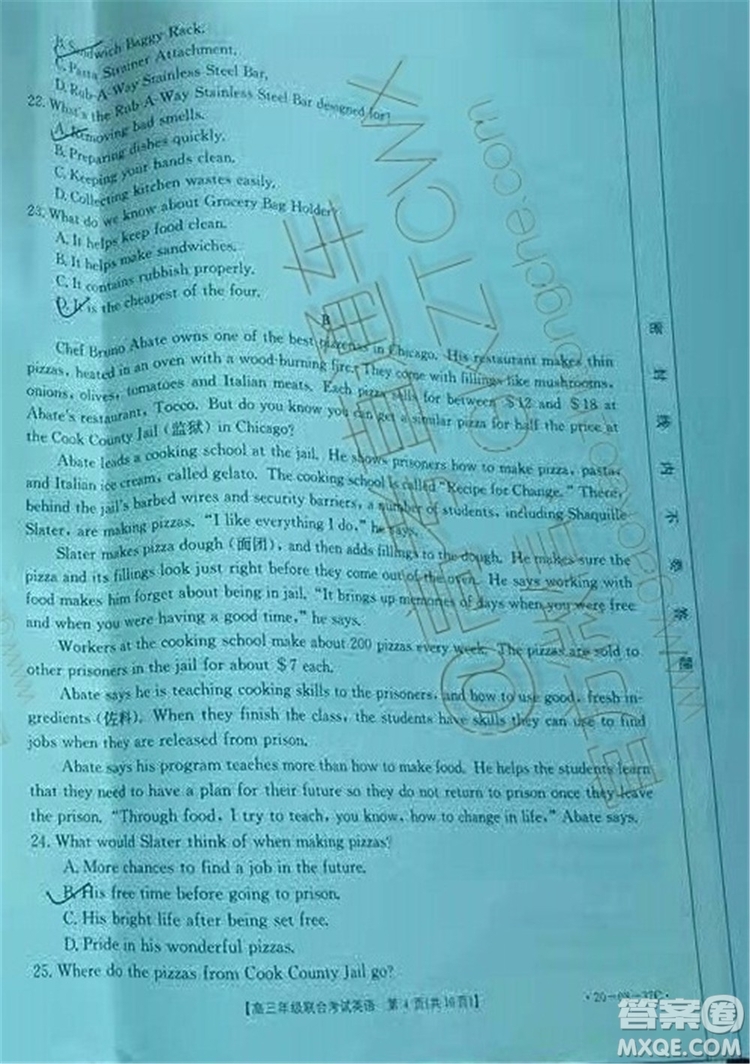 B. Sandwich Baggy Rack.
C. Pasta Strainer Attachment.
D. Rub-A-Way Stainless Steel Bar.
22. What's the Rub-A-Way Stainless Steel Bar designed for?
A. Removing bad smells.
B. Preparing dishes quickly.
C. Keeping your hands clean.
D. Collecting kitchen wastes easily.
23. What do we know about Grocery Bag Holder?
A. It helps keep food clean.
B. It helps make sandwiches.
C. It contains rubbish properly.
D. It is the cheapest of the four.
B
Chef Bruno Abate owns one of the best pizzerias in Chicago. His restaurant makes thin
pizzas, heated in an oven with a wood-burning fire. They come with fillings like mushrooms,
onions, olives, tomatoes and Italian meats. Each pizza sells for between $12 and $18 at
Abate's restaurant, Tocco. But do you know you can get a similar pizza for half the price at
the Cook County Jail (监狱) in Chicago?
Abate leads a cooking school at the jail. He shows prisoners how to make pizza, pasta
and Italian ice cream, called gelato. The cooking school is called "Recipe for Change." There,
behind the jail's barbed wires and security barriers, a number of students, including Shaquille
Slater, are making pizzas. "I like everything I do," he says.
Slater makes pizza dough (面团), and then adds fillings to the dough. He makes sure the
pizza and its fillings look just right before they come out of the oven. He says working with
food makes him forget about being in jail. "It brings up memories of days when you were free
and when you were having a good time," he says.
Workers at the cooking school make about 200 pizzas every week. The pizzas are sold to
other prisoners in the jail for about $7 each.
Abate says he is teaching cooking skills to the prisoners, and how to use good, fresh in-
gredients (佐料). When they finish the class, the students have skills they can use to find
jobs when they are released from prison.
Abate says his program teaches more than how to make food. He helps the students learn
that they need to have a plan for their future so they do not return to prison once they leave
the prison. "Through food, I try to teach, you know, how to change in life," Abate says.
24. What would Slater think of when making pizzas?
A. More chances to find a job in the future.
B. His free time before going to prison.
C. His bright life after being set free.
D. Pride in his wonderful pizzas.
25. Where do the pizzas from Cook County Jail go?
【高三年级联合考试英语 第4页(共10页)】
密封线内不要答题
答案圈
MXQE.COM